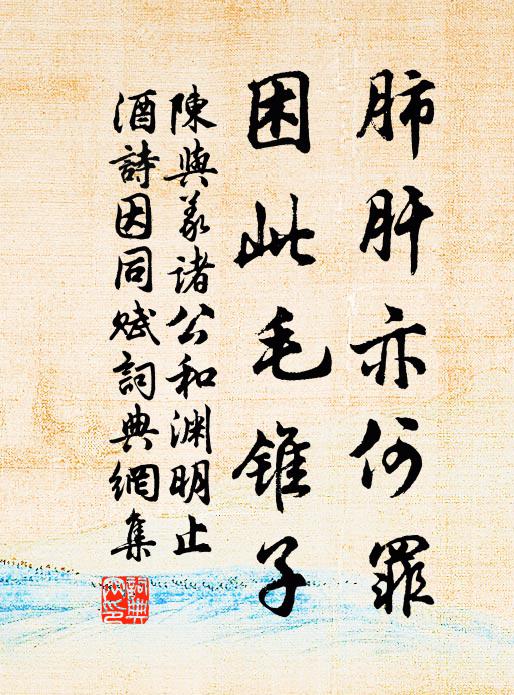 肺肝亦何罪
困此毛锥子
陳與義诸公和渊明止
酒詩因同赋詞典網集